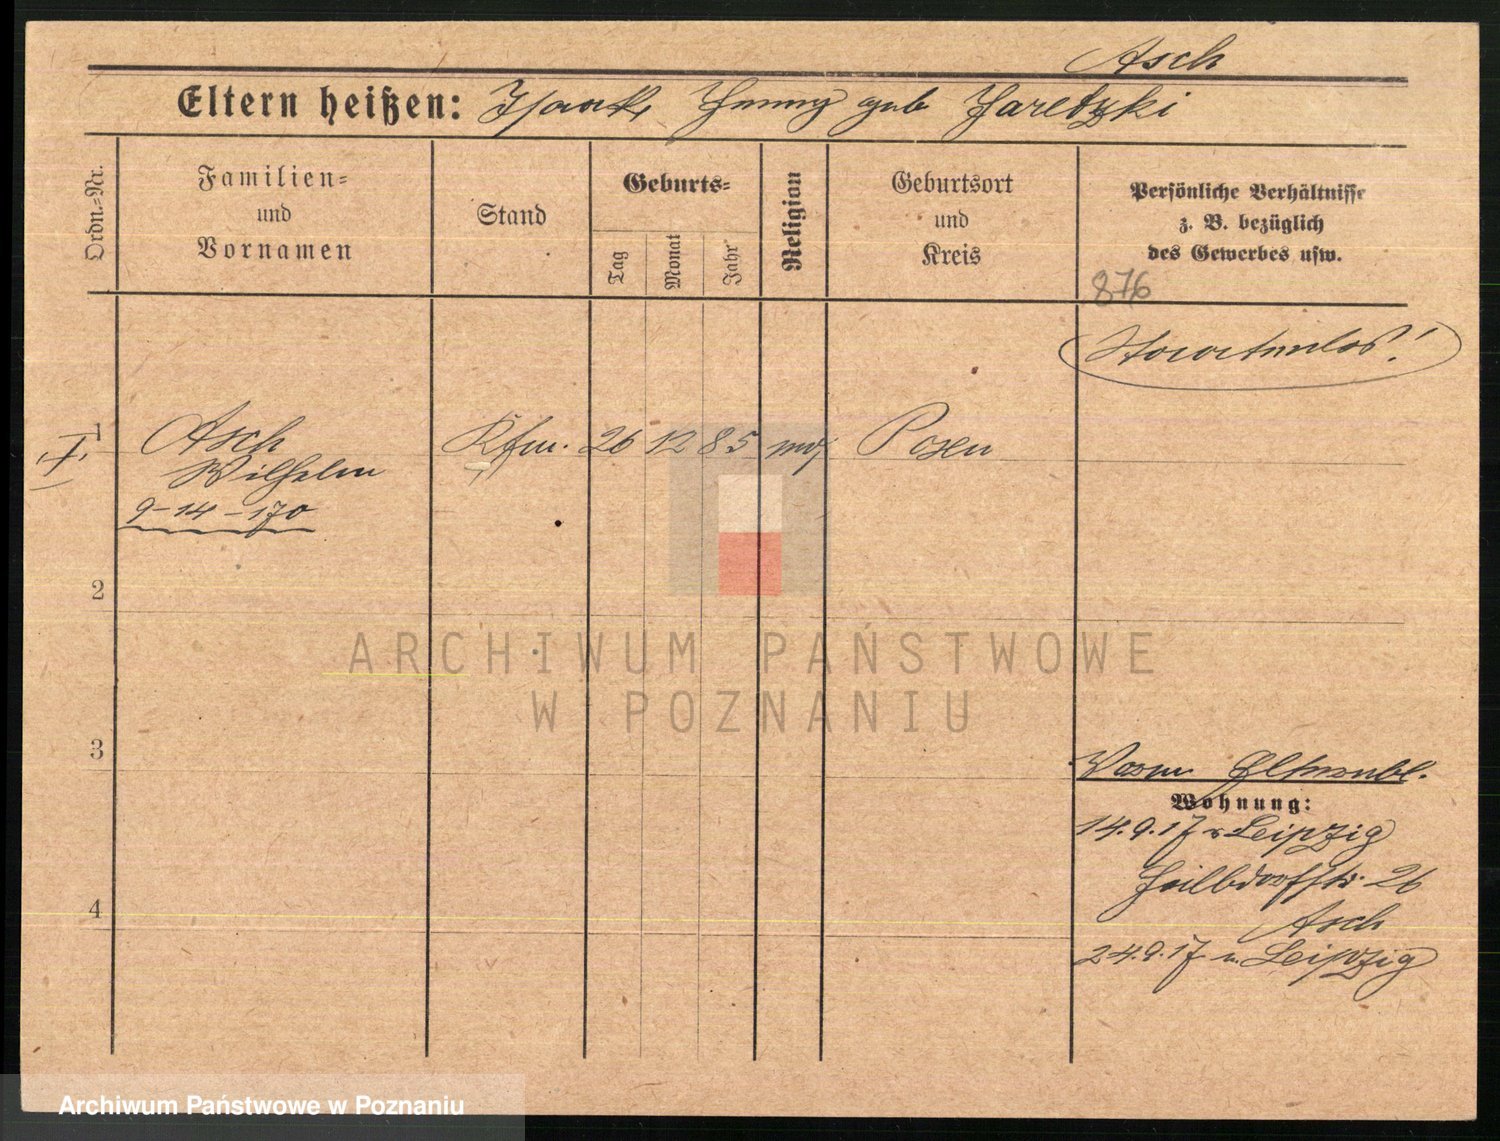 Asch
Eltern heißen: Isaak, Henny geb Zaretzki
Ordn.-Nr.
Familien-
und
Vornamen
Stand
Geburts-
Tag
Monat
Jahr
Religion
Geburtsort
und
Kreis
Persönliche Verhältnisse
z. B. bezüglich
des Gewerbes usw.
876
Staatenlos!
1
Asch Kfm. 26 12 85 mos Posen
Wilhelm
9-14-170
2
3
4
Wohnung:
14.9.17 v Leipzig
26
Asch
24.9.17 n. Leipzig
ARCHIWUM PAŃSTWOWE
W POZNANIU
Archiwum Państwowe w Poznaniu